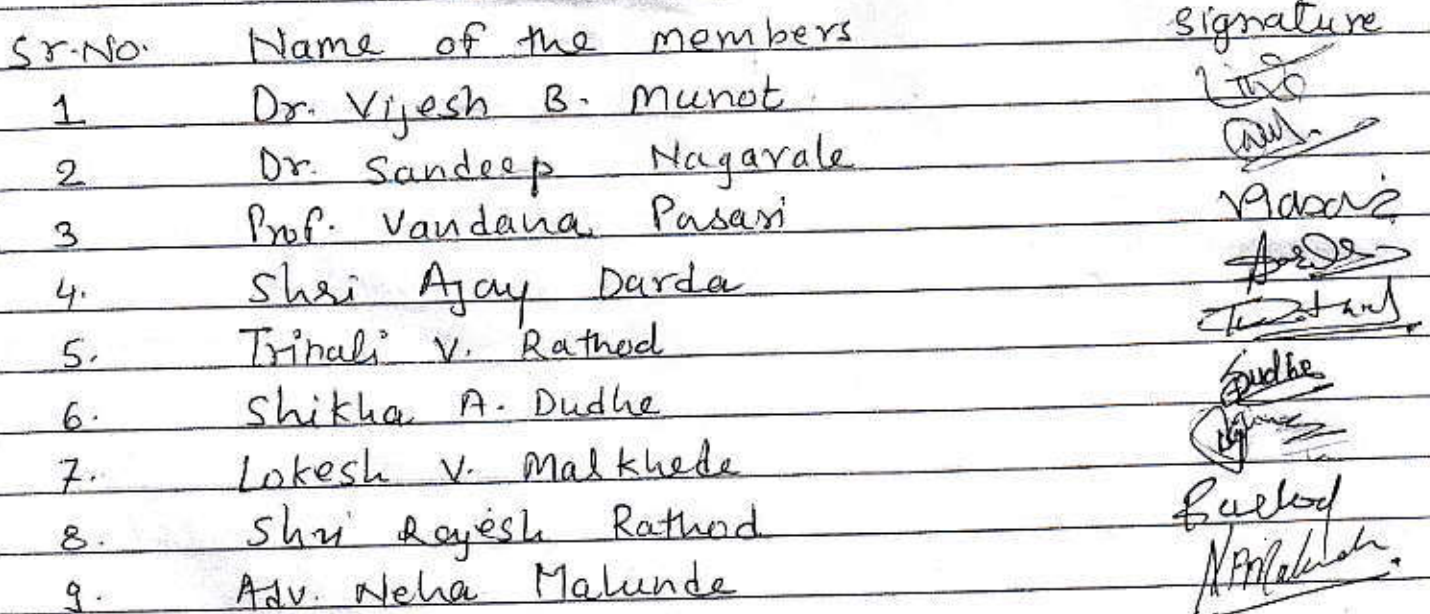 Sr.No. Name of the members signature
1 Dr. Vijesh B. Munot
2 Dr. Sandeep Nagarale
3 Prof. Vandana Pasari
4. Shri Ajay Darda
5. Trinali V. Rathod
6. Shikha A. Dudhe Dudhe
7. Lokesh V. Malkhede
8. Shri Rajesh Rathod
9. Adv. Neha Malunde